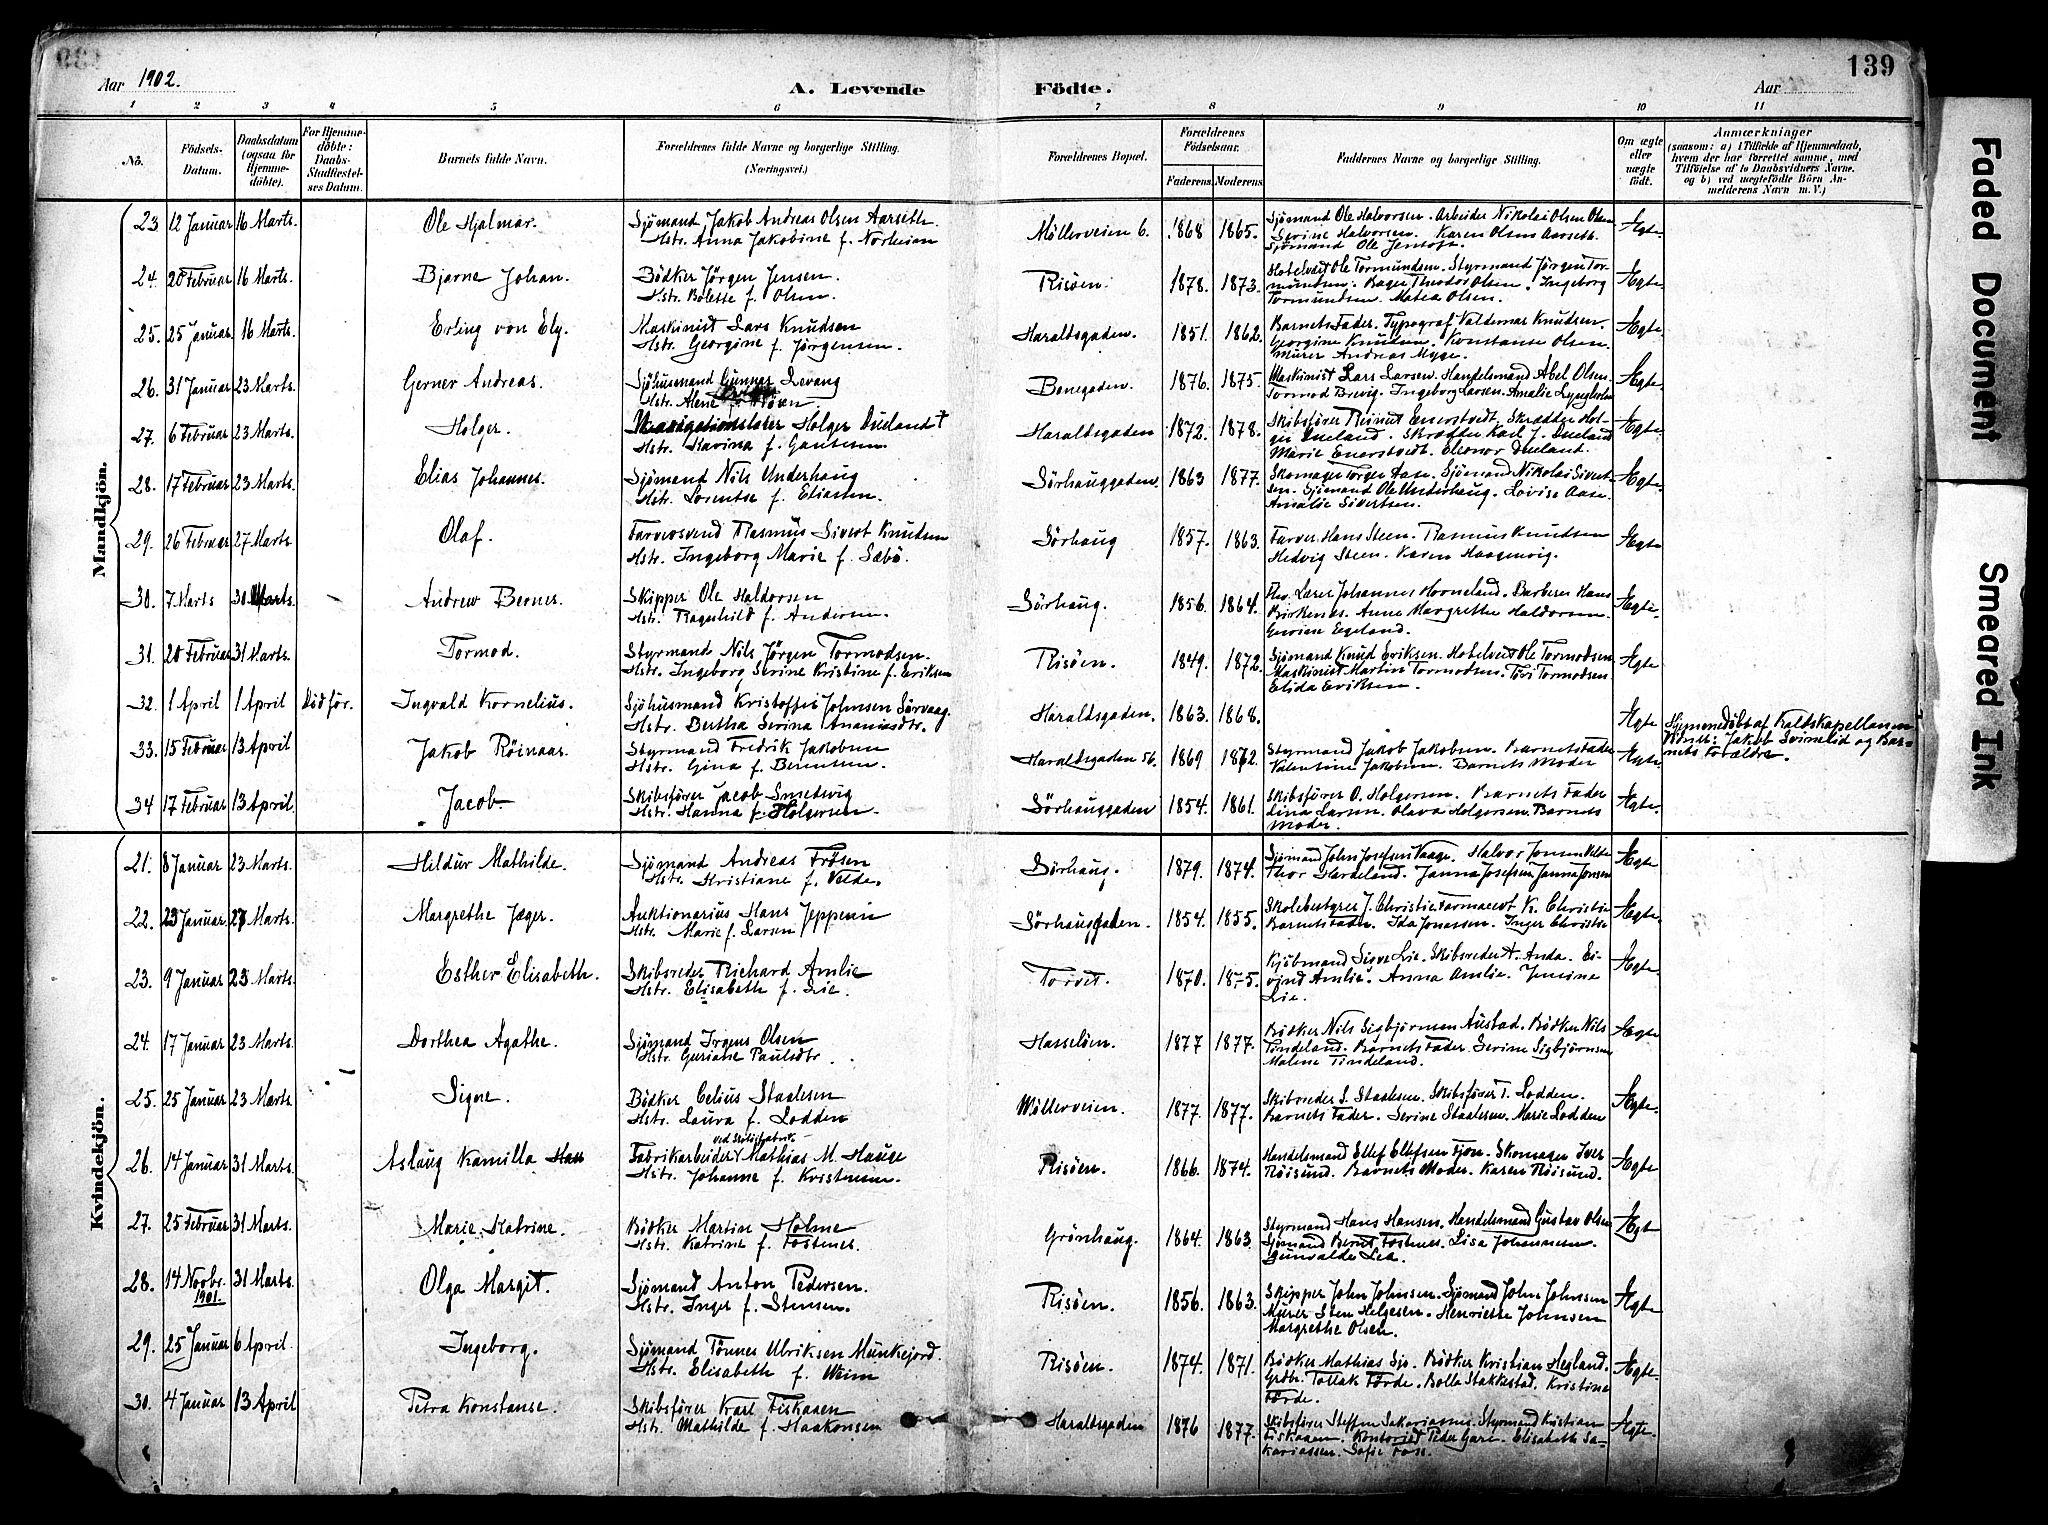 139
Aar 1902.
A. Levende Födte.
Aar
1 2 3 4 5 6 7 8 9 10 11
No.
Födsels-Datum.
Daabsdatum (ogsaa for Hjemme-döbte).
For Hjemme-döbte: Daabs-Stadfæstel-ses Datum.
Barnets fulde Navn.
Forældrenes fulde Navne og borgerlige Stilling. (Næringsvei.)
Forældrenes Bopæl.
Forældrenes Födselsaar.
Faderens. Moderens.
Faddernes Navne og borgerlige Stilling.
Om ægte eller uægte födt.
Anmærkninger
(saasom: a) i Tilfælde af Hjemmedaab, hvem der har forrettet samme, med Tilföielse af to Daabsvidners Navne. og b) ved uægtefödte Börn An-melderens Navn m. V.)
Mandkjön.
23 12 Januar 16 Marts. Ole Hjalmar. Sjömand Jakob Andreas Olsen Aarseth Hstr. Anna Jakobine f. Norheim Möllerveien 6. 1868 1865. Sjömand Ole Halvorsen. Arbeider Nikolai Olsen Olsen Serine Halvorsen. Karen Olsen Aarseth. Sjömand Ole Jentoft. Ægte.
24. 20 Februar 16 Marts. Bjarne Johan. Bödker Jörgen Jensen. Hstr. Bolette f. Olsen. Risöen. 1878. 1873. Hotelvert Ole Tormundsen. Styrmand Jörgen Tor-mundsen. Bager Theodor Olsen. Ingeborg Tormundsen. Matea Olsen. Ægte.
25. 25 Januar 16 Marts. Erling von Ely. Maskinist Lars Knudsen Hstr. Georgine f. Jörgensen. Haraldsgaden. 1851. 1862. Barnets Fader. Typograf Valdemar Knudsen. Georgine Knudsen. Konstanse Olsen. Murer Andreas Myge. Ægte.
26. 31 Januar 23 Marts. Gerner Andreas. Sjöhusmand Gunnar Levang Hstr. Alene f. Bönegaden. 1876. 1875. Maskinist Lars Larsen. Handelsmand Abel Olsen. Tormod Brevig. Ingeborg Larsen. Amalie Lyngholm Ægte.
27. 6 Februar 23 Marts. Holger. Navigationslærer Holger Dueland † Hstr. Kavina f. Haraldsgaden 1872. 1878. Skibsförer Reinert Enerstvedt. Skrædder Hol-ger Dueland. Skrædder Karl J. Dueland Marie Enerstvedt. Eleonor Dueland. Ægte.
28. 17 Februar 23 Marts. Elias Johannes. Sjömand Nils Underhaug Hstr. Lorentse f. Eliassen. Sörhauggaden. 1863 1877. Skomager Torger Aase. Sjömand Nikolai Sivert-sen. Sjömand Ole Underhaug. Lovise Aase. Amalie Sivertsen. Ægte.
29. 26 Februar 27 Marts. Olaf. Farversvend Rasmus Sivert Knudsen Hstr. Ingeborg Marie f. Sæbö. Sörhaug 1857. 1863. Farver Hans Steen. Rasmus Knudsen Hedvig Steen. Karen Haagenvig. Ægte
30. 7 Marts 30 Marts. Andrew Berner. Skipper Ole Haldorsen Hstr. Ragnhild f. Andersen. Sörhaug. 1856. 1864. Lærer Johannes Horneland. Barberer Hans Birkenes. Anne Margrethe Haldorsen. Egeland. Ægte.
31. 20 Februar 31 Marts. Tormod. Styrmand Nils Jörgen Tormodsen. Hstr. Ingeborg Serine Kristine f. Eriksen Risöen. 1849. 1872. Sjömand Knud Eriksen. Hotelvert Ole Tormodsen Maskinist Martin Tormodsen. Tormodsen. Elida Eriksen. Ægte
32. 1 April 1 April Död för. Ingvald Kornelius. Sjöhusmand Kristoffer Johnsen Sörvaag. Hstr. Bertha Serina Ananiasdtr. Haraldsgaden. 1863. 1868. Ægte Hjemmedöbt af Kaldskapellanen Vidner: Jakob Svinelid og Bar-nets Forældre.
33. 15 Februar 13 April Jakob Röinaas. Styrmand Fredrik Jakobsen Hstr. Gina f. Berentsen. Haraldsgaden 56. 1869 1872. Styrmand Jakob Jakobsen. Barnets Fader Valentine Jakobsen. Barnets Moder Ægte.
34 17 Februar 13 April. Jacob Skibsförer Jacob Smedsvig Hstr. Hanna f. Holgersen. Sörhauggaden 1854. 1861. Skibsförer O. Holgersen. Barnets Fader Lina Larsen. Olava Holgersen. Barnets Moder. Ægte.
Kvindekjön.
21. 8 Januar 23 Marts. Hildur Mathilde. Sjömand Andreas Frösen Hstr. Kristiane f. Velde. Sörhaug. 1879. 1874. Sjömand John Josefsen Vaage. Halvor Jonsen Velde Thor Hardeland. Janna Josefsen. Janna Jonsen Ægte
22. 23 Januar 27 Marts. Margrethe Jæger. Auktionarius Hans Jeppesen Hstr. Marie f. Larsen Sörhauggaden. 1854. 1855. Skolebestyrer J. Christie. Farmaceut K. Christie Barnets Fader. Ida Jonassen. Inger Christie Ægte.
23. 9 Januar 23 Marts. Esther Elisabeth. Skibsreder Richard Amlie Hstr. Elisabeth f. Lie. Torvet. 1870. 1875. Kjöbmand Sigve Lie. Skibsreder A. Anda. Ei-vind Amlie. Anna Amlie. Lie. Ægte.
24. 17 Januar 23 Marts. Dorthea Agathe. Sjömand Irgens Olsen Hstr. Guriane Paulsdtr. Hasselöen. 1877 1877. Bödker Nils Sigbjörnsen Austad. Bödker Nils Tindeland. Barnets Fader. Serine Sigbjörnsen Malene Tindeland. Ægte
25. 25 Januar 23 Marts. Signe. Bödker Celius Staalesen Hstr. Laura f. Lodden Möllerveien. 1877. 1877. Skibsreder S. Staalesen. Skibsförer T. Lodden. Barnets Fader. Serine Staalesen. Marie Lodden Ægte.
26. 14 Januar 31 Marts. Aslaug Kamilla Fabrikarbeider Mathias M. Hauge Hstr. Johanne f. Kristensen. Risöen. 1866. 1874. Handelsmand Ellef Ellefsen Fjon. Skomager Iver Röisund. Barnets Moder. Karen Röisund. Ægte
27. 25 Februar 31 Marts. Marie Katrine. Bödker Martin Holme Hstr. Katrine f. Fostenes. Grönhaug. 1864. 1863. Styrmand Hans Hansen. Handelsmand Gustav Olsen Sjömand Bernt Fostenes. Lisa Johannesen. Gunvalda Lea. Ægt
28. 14 Novbr. 1901. 31 Marts. Olga Margit. Sjömand Anton Pedersen. Hstr. Inger f. Stensen. Risöen. 1856. 1863. Skipper John Johnsen. Sjömand John Johnsen Murer Sten Helgesen. Henriette Johnsen Margrethe Olsen. Ægte
29. 25 Januar 6 April. Ingeborg. Sjömand Tönnes Ulriksen Munkejord. Hstr. Elisabeth f. Weim Risöen. 1874. 1871. Bödker Mathias Sjo. Bödker Kristian Hegland. Grdbr. Tollak Förde. Bolla Stakkestad. Kristine Förde. Ægte.
30. 4 Januar 13 April Petra Konstanse. Skibsförer Karl Fiskaaen Hst. Mathilde f. Haakonsen Haraldsgaden 1876 1877. Skibsförer Steffen Sakariassen. Styrmand Kristian Fiskaaen. Kontorist Peder Gare. Elisabeth Sa-kariassen. Sofie Foss. Ægte.
Faded Document
Smeared Ink